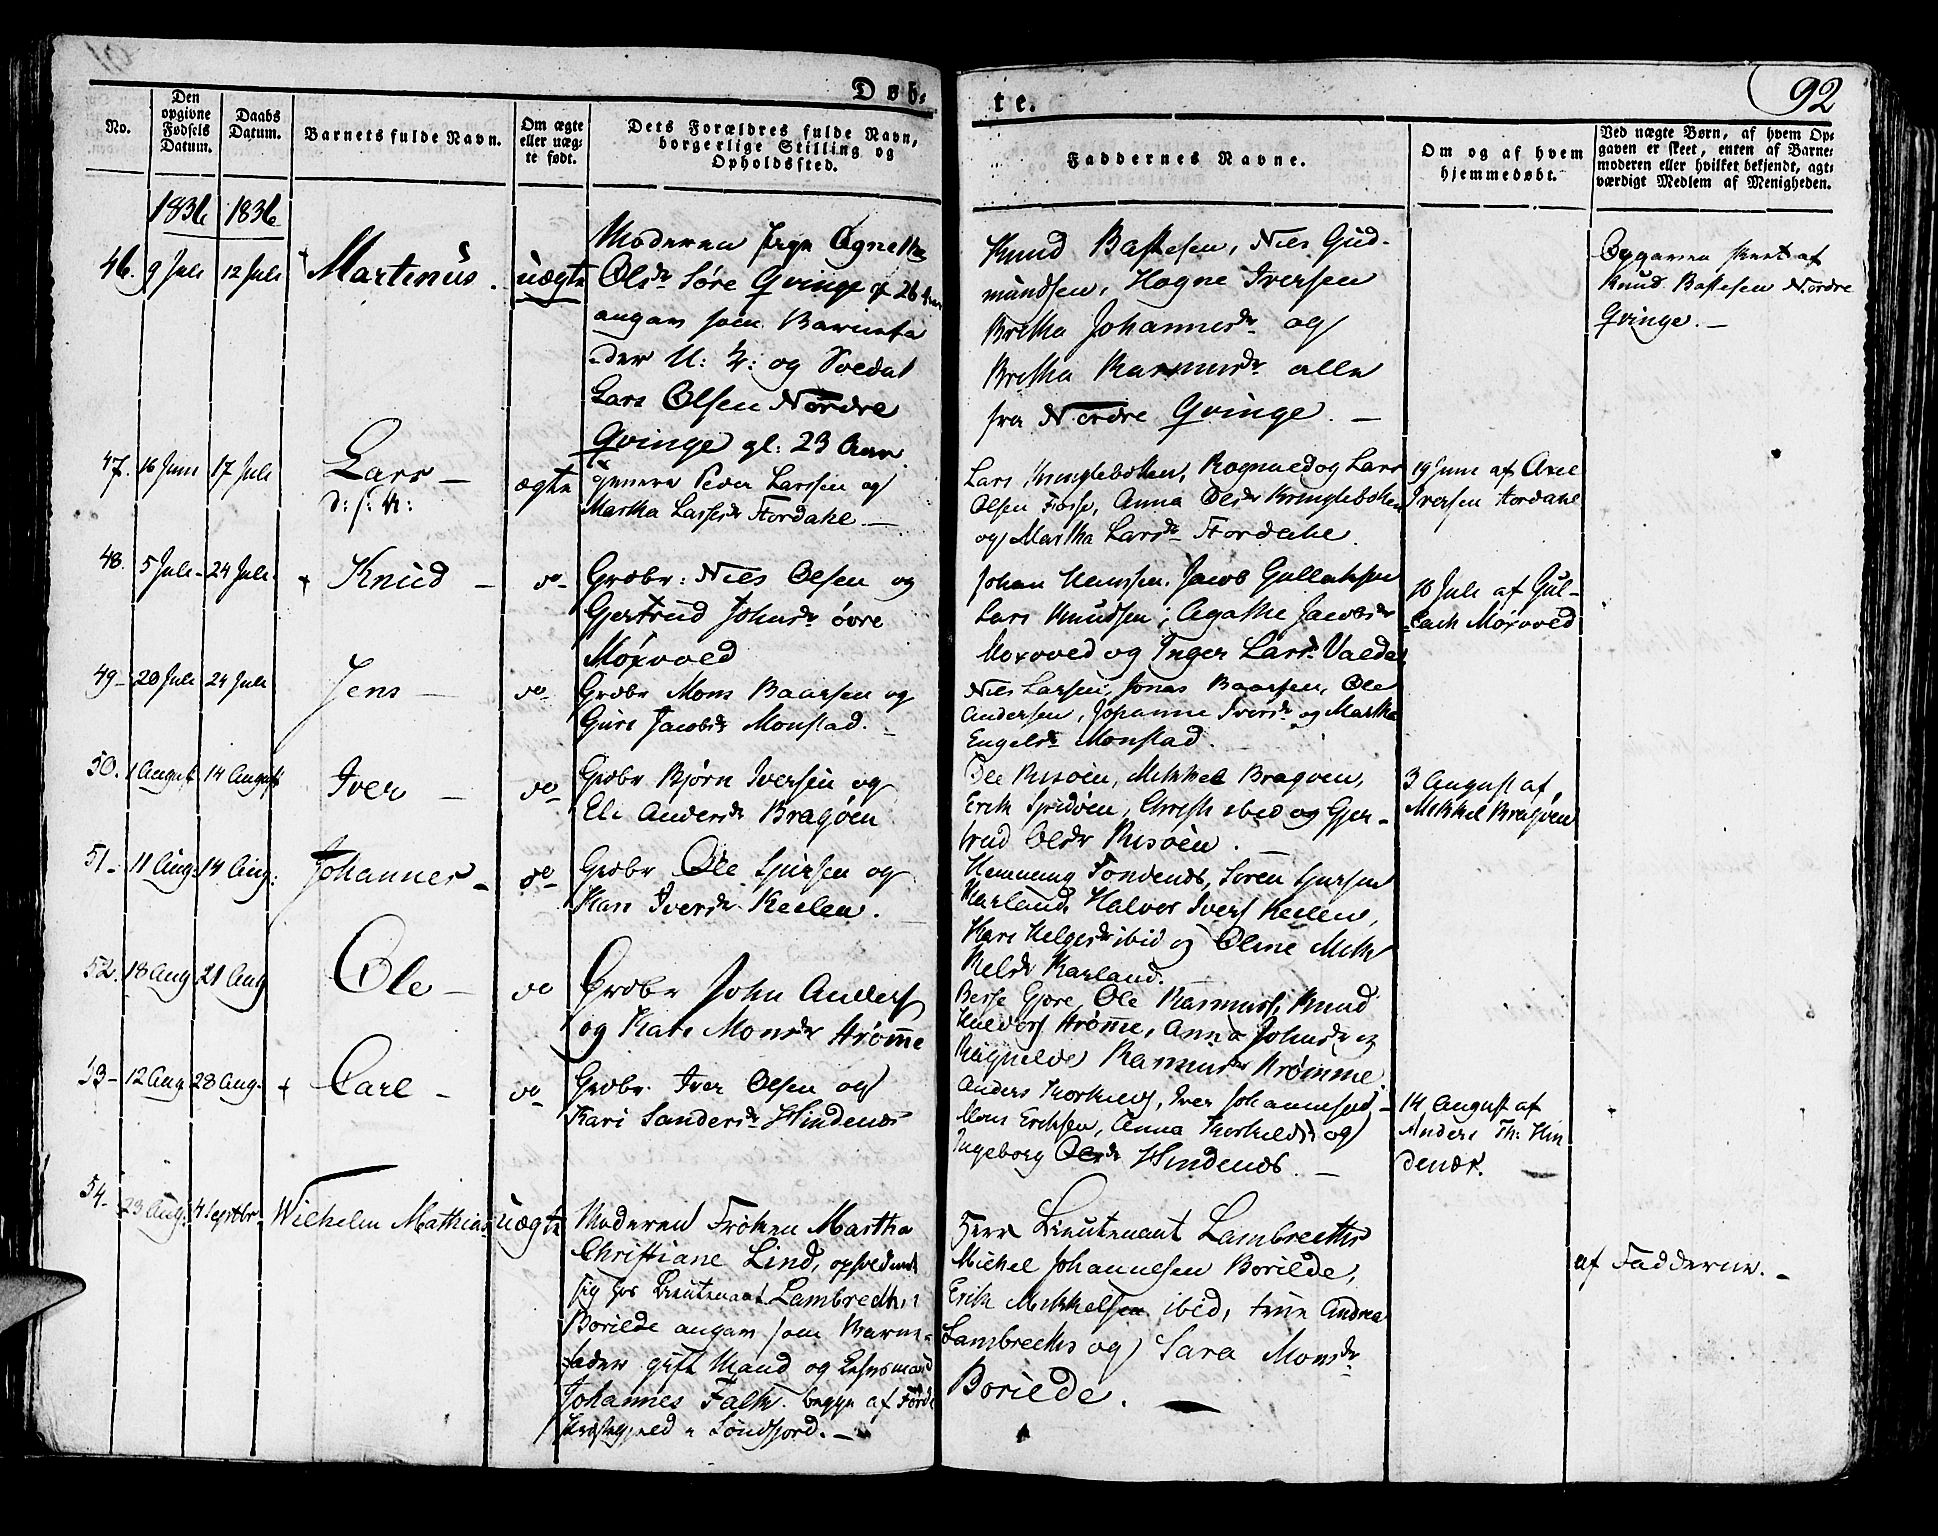 Døb-
te.
92
No.
Den opgivne Fødsels Datum.
Daabs Datum.
Barnets fulde Navn.
Om ægte eller uægte født.
Dets Forældres fulde Navn, borgerlige Stilling og Opholdssted.
Faddernes Navne.
Om og af hvem hjemmedøbt.
Ved uægte Børn, af hvem Opgaven er skeet, enten af Barnemoderen eller hvilket bekjendt, agtværdigt Medlem af Menigheden.
1836 1836
46. 9 Juli 12 Juli Martinus. uægte
Moderen Pige Agnetha
Olsdr Søre Qvinge gl 26 Aar
angav som Barnefa
der U: K: og Soldat
Lars Olsen Nordre
Qvinge gl: 23 Aar.
Knud Baftesen, Niels Gud-
mundsen, Hogne Iversen
Britha Johannesdr og
Britha Rasmusdr alle
fra Nordre Qvinge. —
Opgaven skeet af
Knud Baftesen Nordre
Qvinge. —
47. 16 Juni 17 Juli Lars — ægte
D: s: K:
Peder Larssen og
Martha Lassesdr Hordahle —
Lars Kringleboten, Rognald og Lars
Olsen Fosse, Anna Olsdr Kringleboten
og Martha Larsdr Hordahle.
19 Juni af Axel
Iversen Hordahle
48. 5 Juli 24 Juli Knud — do
Grdbr: Niels Olsen og
Gjertrud Johnsdr øvre
Moxvold
Johan Monssen, Jacob Gullaksen
Lars Knudsen, Agathe Jacobsdr
Moxvold og Inger Larsdr Valde
10 Juli af Gul-
lach Moxvold
49 20 Juli 24 Juli Jens — do
Grdbr Mons Baarsen og
Guri Jacobsdr Monstad. —
Niels Larsen, Jonas Baarsen, Ole
Andersen, Johanne Iversdr og Martha
Engelsdr Monstad.
50. 1 August 14 August Iver — do
Grdbr Bjørn Iversen og
Eli Andersdr Bragøen
Ole Risøen, Mikkel Bragøen,
Erik Sprdøen, Christi ibid og Gjer-
trud Olsdr Risøen.
3 August af
Mikkel Bragøen
51 11 Aug: 14 Aug: Johannes — do
Grdbr Ole Sjursen og
Kari Iversdr Keilen.
Henning Fondenes, Søren Sjursen
Karland, Halvor Ivers Keilen,
Kari Helgesdr ibid og Oline Mik
kelsdr Karland.
52. 18 Aug 21 Aug Ole — do
Grdbr John Anders
og Kari Monsdr Strømme
Besse Gjøre, Ole Rasmuss, Knud
Haldors Strømme, Anna Johnsdr og
Ragnilde Rasmusdr Strømme
53 12 Aug 28 Aug. Carl — do
Grdbr. Iver Olsen og
Kari Sandersdr Hindenes
Anders Thorkilds, Iver Johannesen,
Mons Erichsen, Anna Thorkildsdr og
Ingeborg Olsdr Hindenes. —
14 August af
Anders Th: Hin
denæs.
54 23 Aug: 4 Septbr Wilhelm Mathias uægte
Moderen Frøken Martha
Christiane Lind, opholdende
sig hos Lieutenant Lambrechts
Borilde angav som Barne-
fader gift Mand og Lehnsmand
Johannes Falk. begge af Førde
Præstegjeld i Søndfjord. —
Herr Lieutenant Lambrechts
Michel Johannesen Borilde,
Erik Mikkelsen ibid, Frue Andrea
Lambrechts og Sara Monsdr
Borilde. —
af Fadderne. —